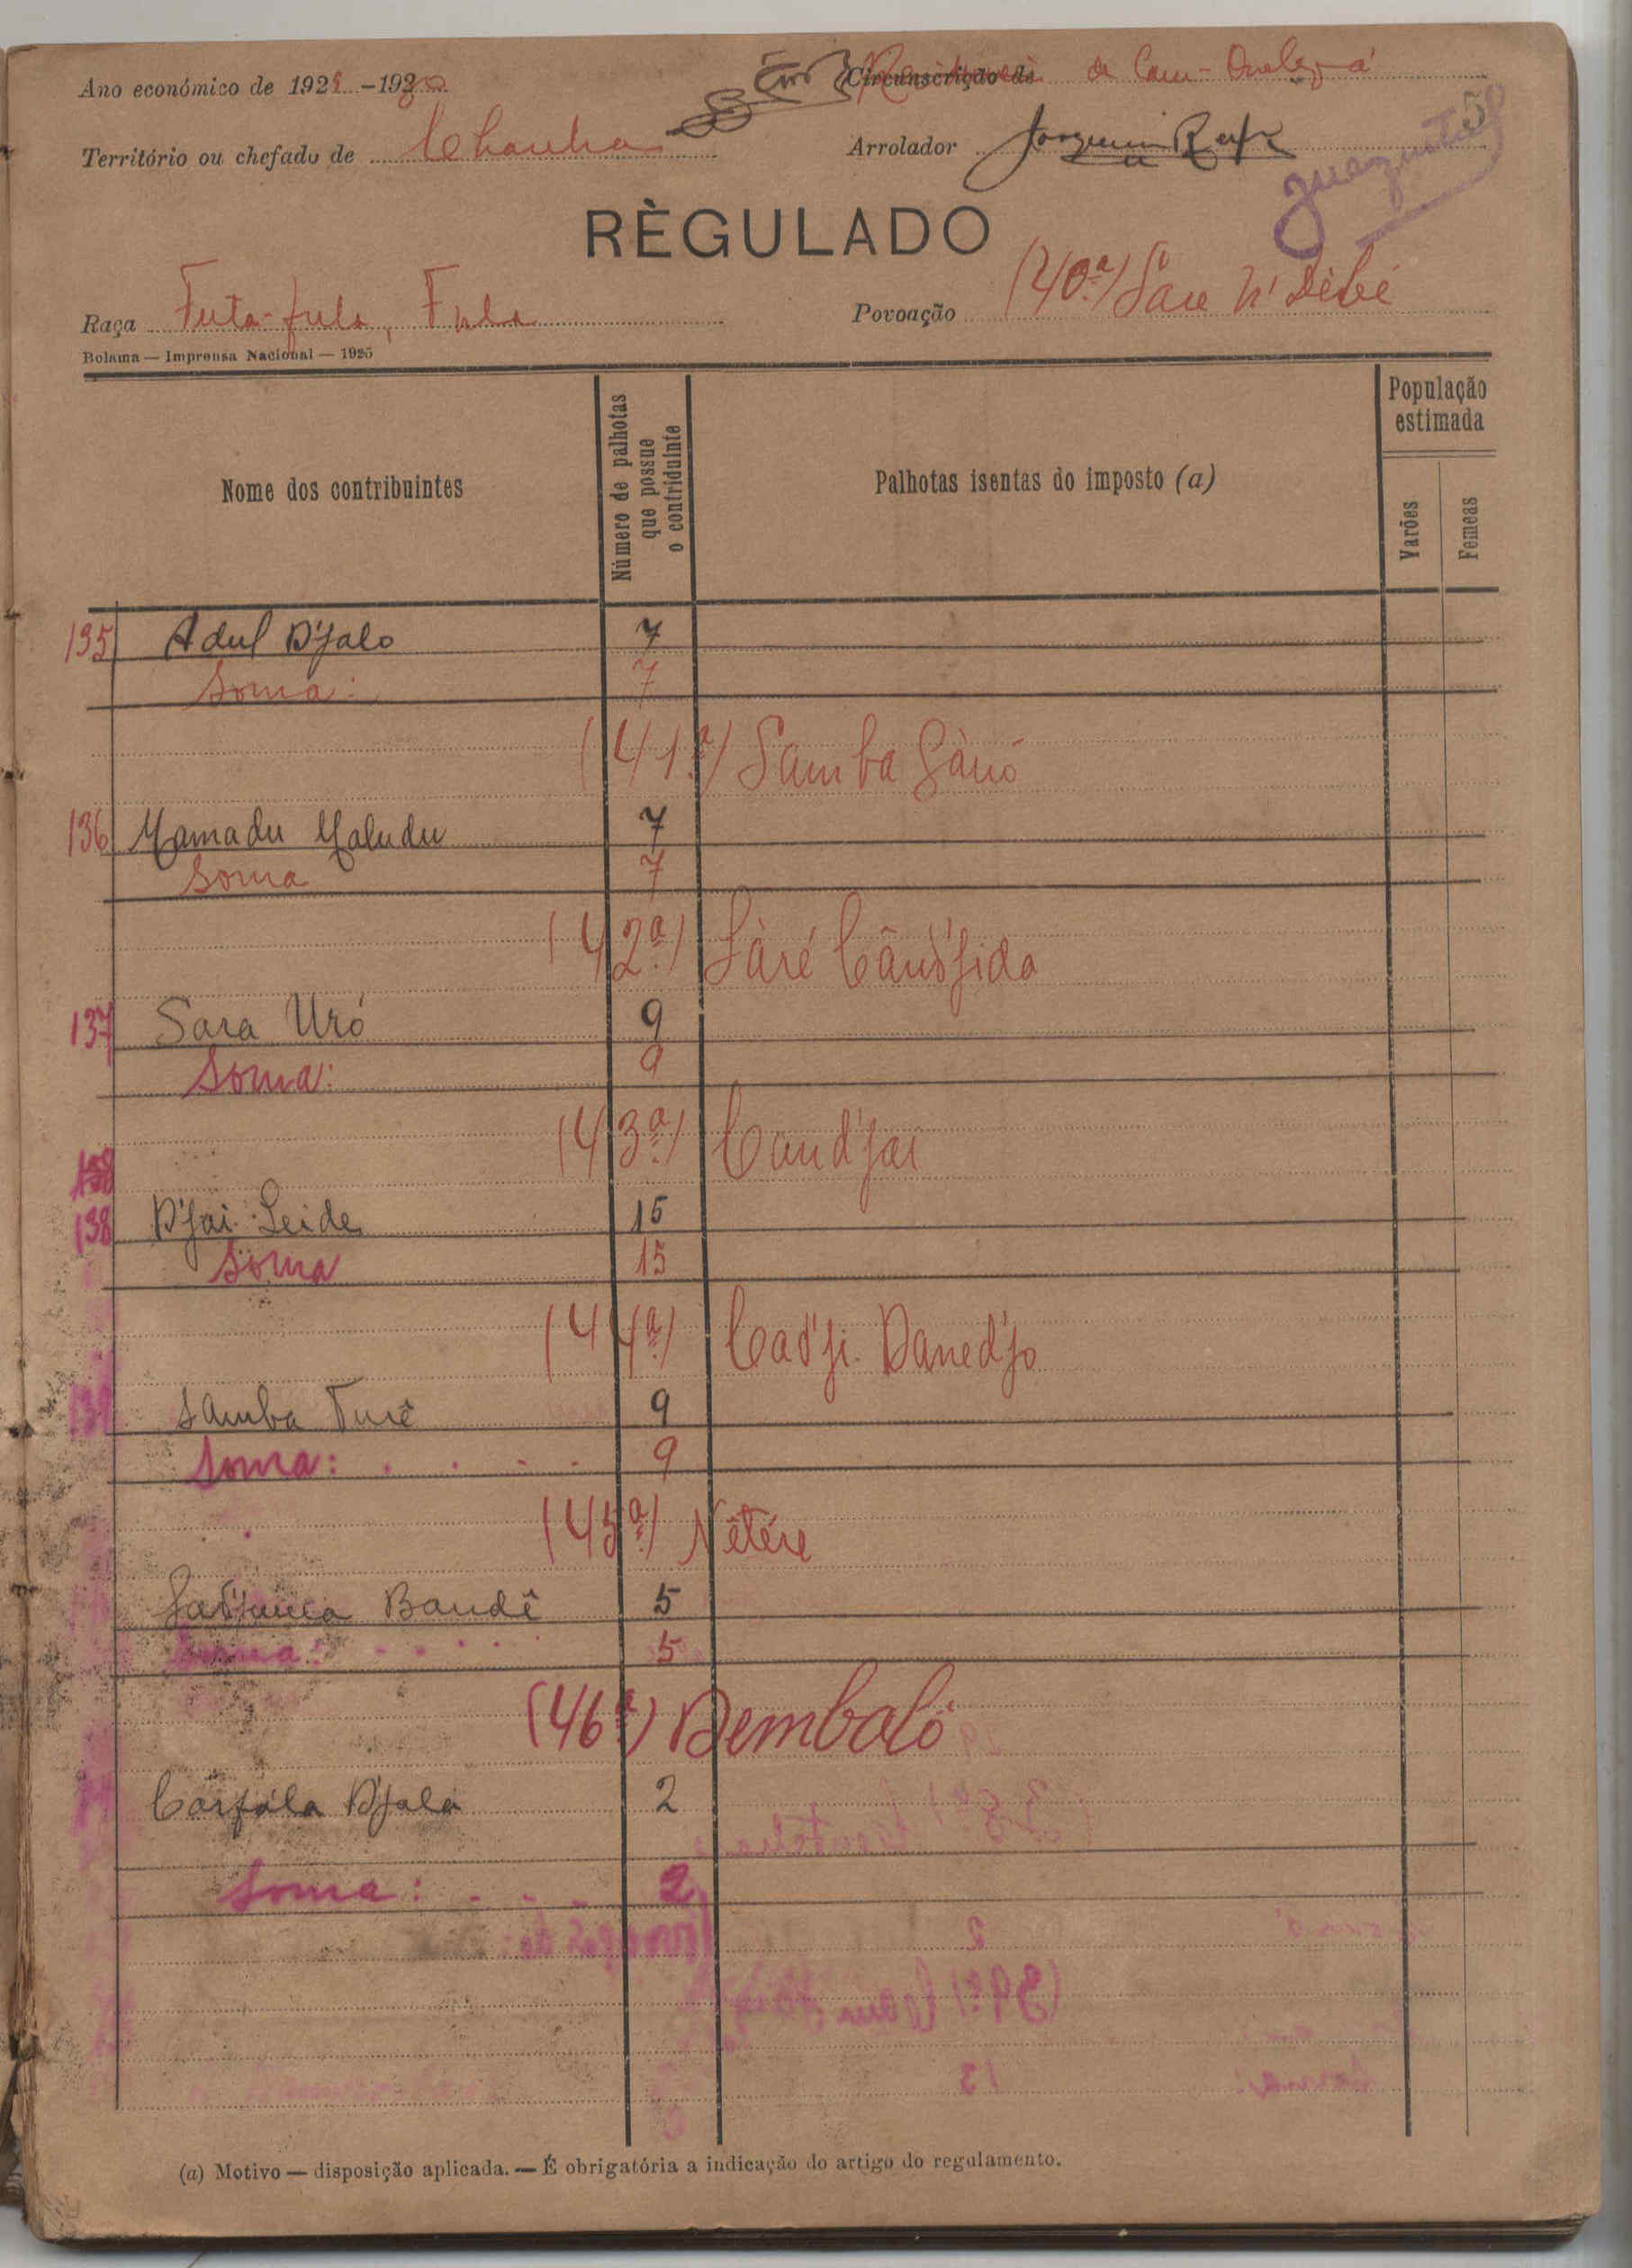 Ano económico de 1929-1930
Circunscrição de
de Cam-Quelefá
5
Território ou chefado de Chanha
Arrolador Joaquim
RÈGULADO
Raça Futa-fula, Fula
Povoação (40.ª) Sare N'Débé
Bolama — Imprensa Nacional — 1925
Nome dos contribuintes
Número de palhotas que possue o contriduinte
Palhotas isentas do imposto (a)
População estimada
Varões
Femeas
135 Adul D'jalo 7
Soma: 7
(41.ª) Samba Gànó
136 Mamadu Maludu 7
Soma 7
(42.ª) Sàré
137 Sara Uró 9
Soma: 9
(43.ª) Cand'jai
138
138 D'jai Seide 15
Soma 15
(44.ª) Cad'ji Daned'jo
139 Samba Turê 9
Soma: . . . . 9
(45.ª) Nêtére
Baudê 5
Soma: . . . . . 5
(46.ª) Dembaló
D'jaló 2
Soma: . . . 2
(a) Motivo — disposição aplicada. — É obrigatória a indicação do artigo do regulamento.